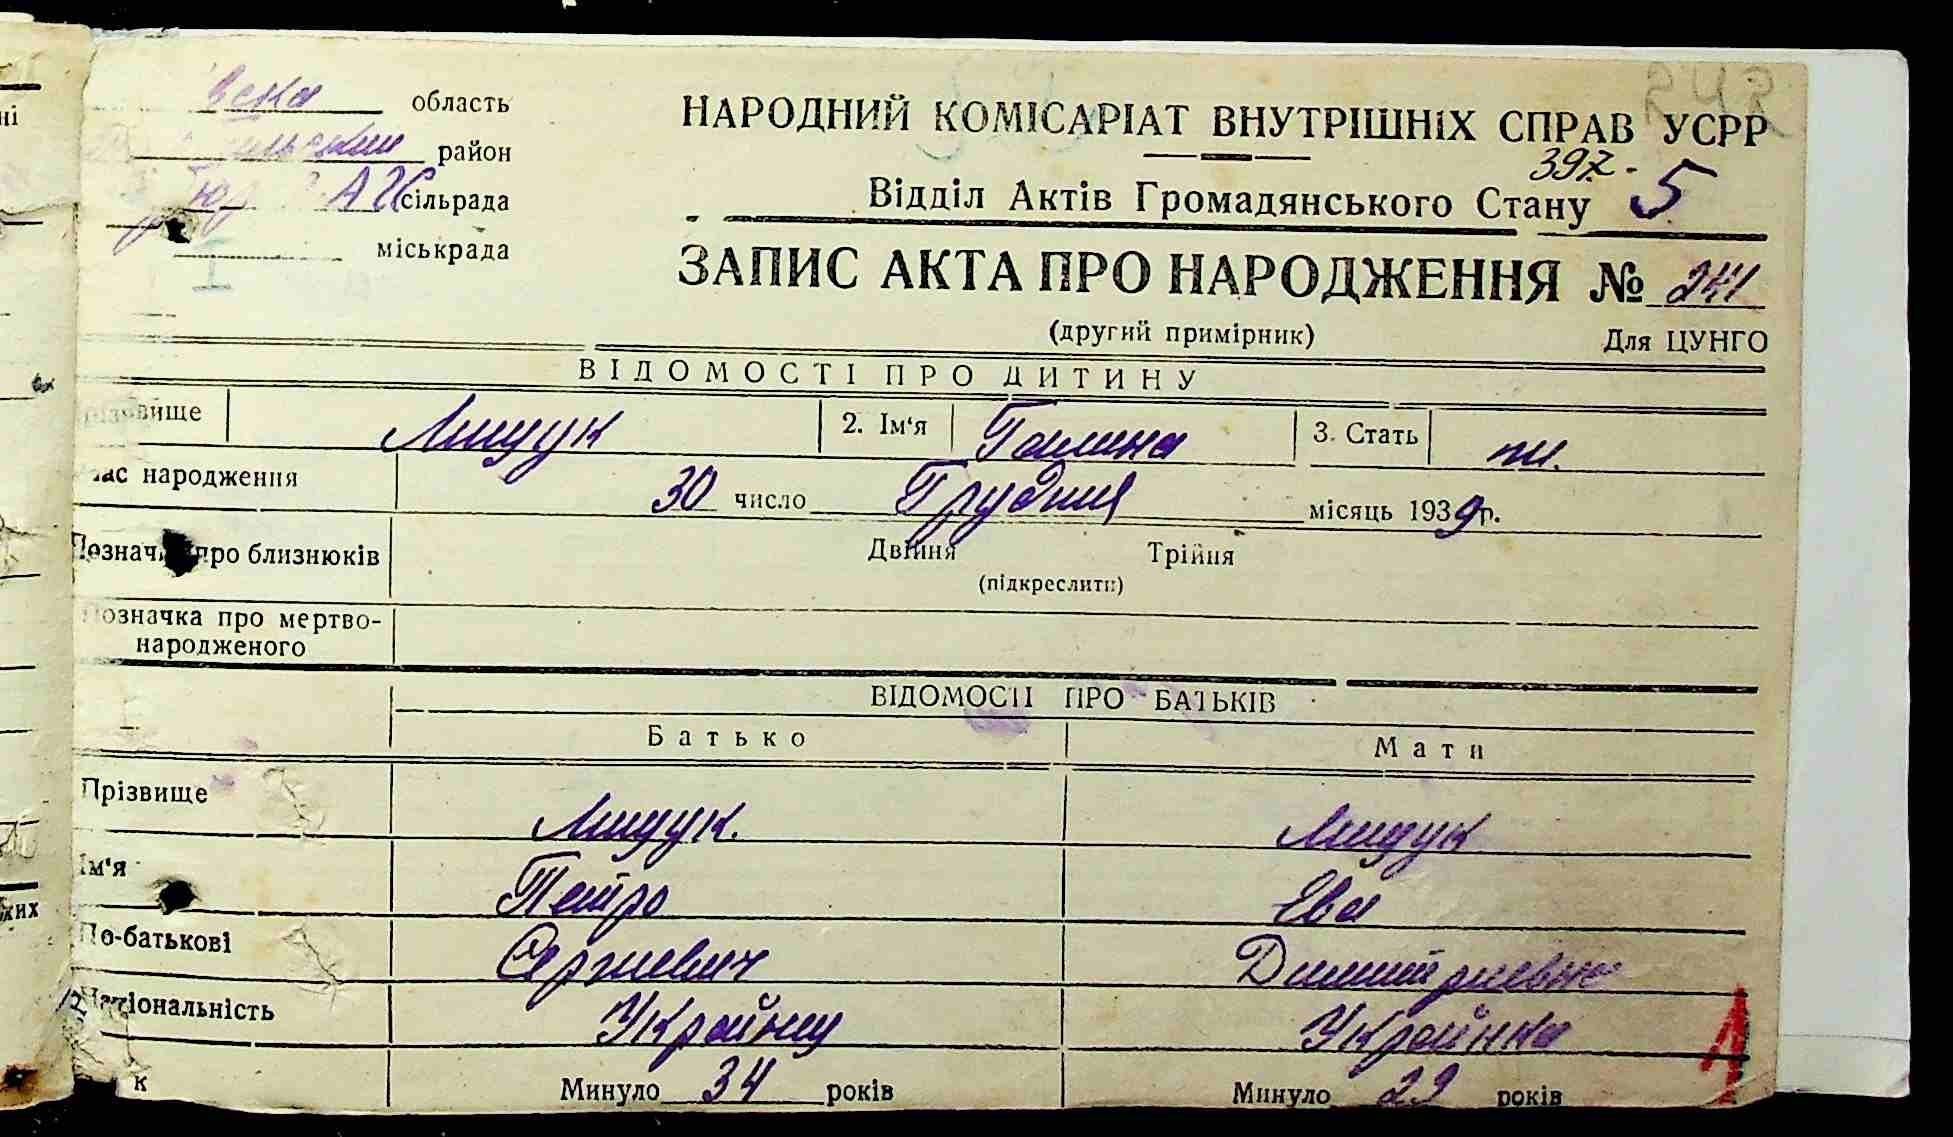 вска область
район
сільрада
міськрада
242
НАРОДНИЙ КОМІСАРІАТ ВНУТРІШНІХ СПРАВ УСРР
397.- 5
Відділ Актів Громадянського Стану
ЗАПИС АКТА ПРО НАРОДЖЕННЯ № 241
(другий примірник) Для ЦУНГО
ВІДОМОСТІ ПРО ДИТИНУ
звище Лищук 2. Ім'я Галина 3. Стать ж.
час народження 30 число Грудня місяць 1939 р.
Позначка про близнюків Двійня Трійня
(підкреслити)
Позначка про мертво-
народженого
ВІДОМОСТІ ПРО БАТЬКІВ
Батько Мати
Прізвище Лищук. Лищук
Ім'я Петро Ева
По-батькові Сергиевич Димитриевна
Національність Украйнец Украйнка
к Минуло 34 років Минуло 29 років